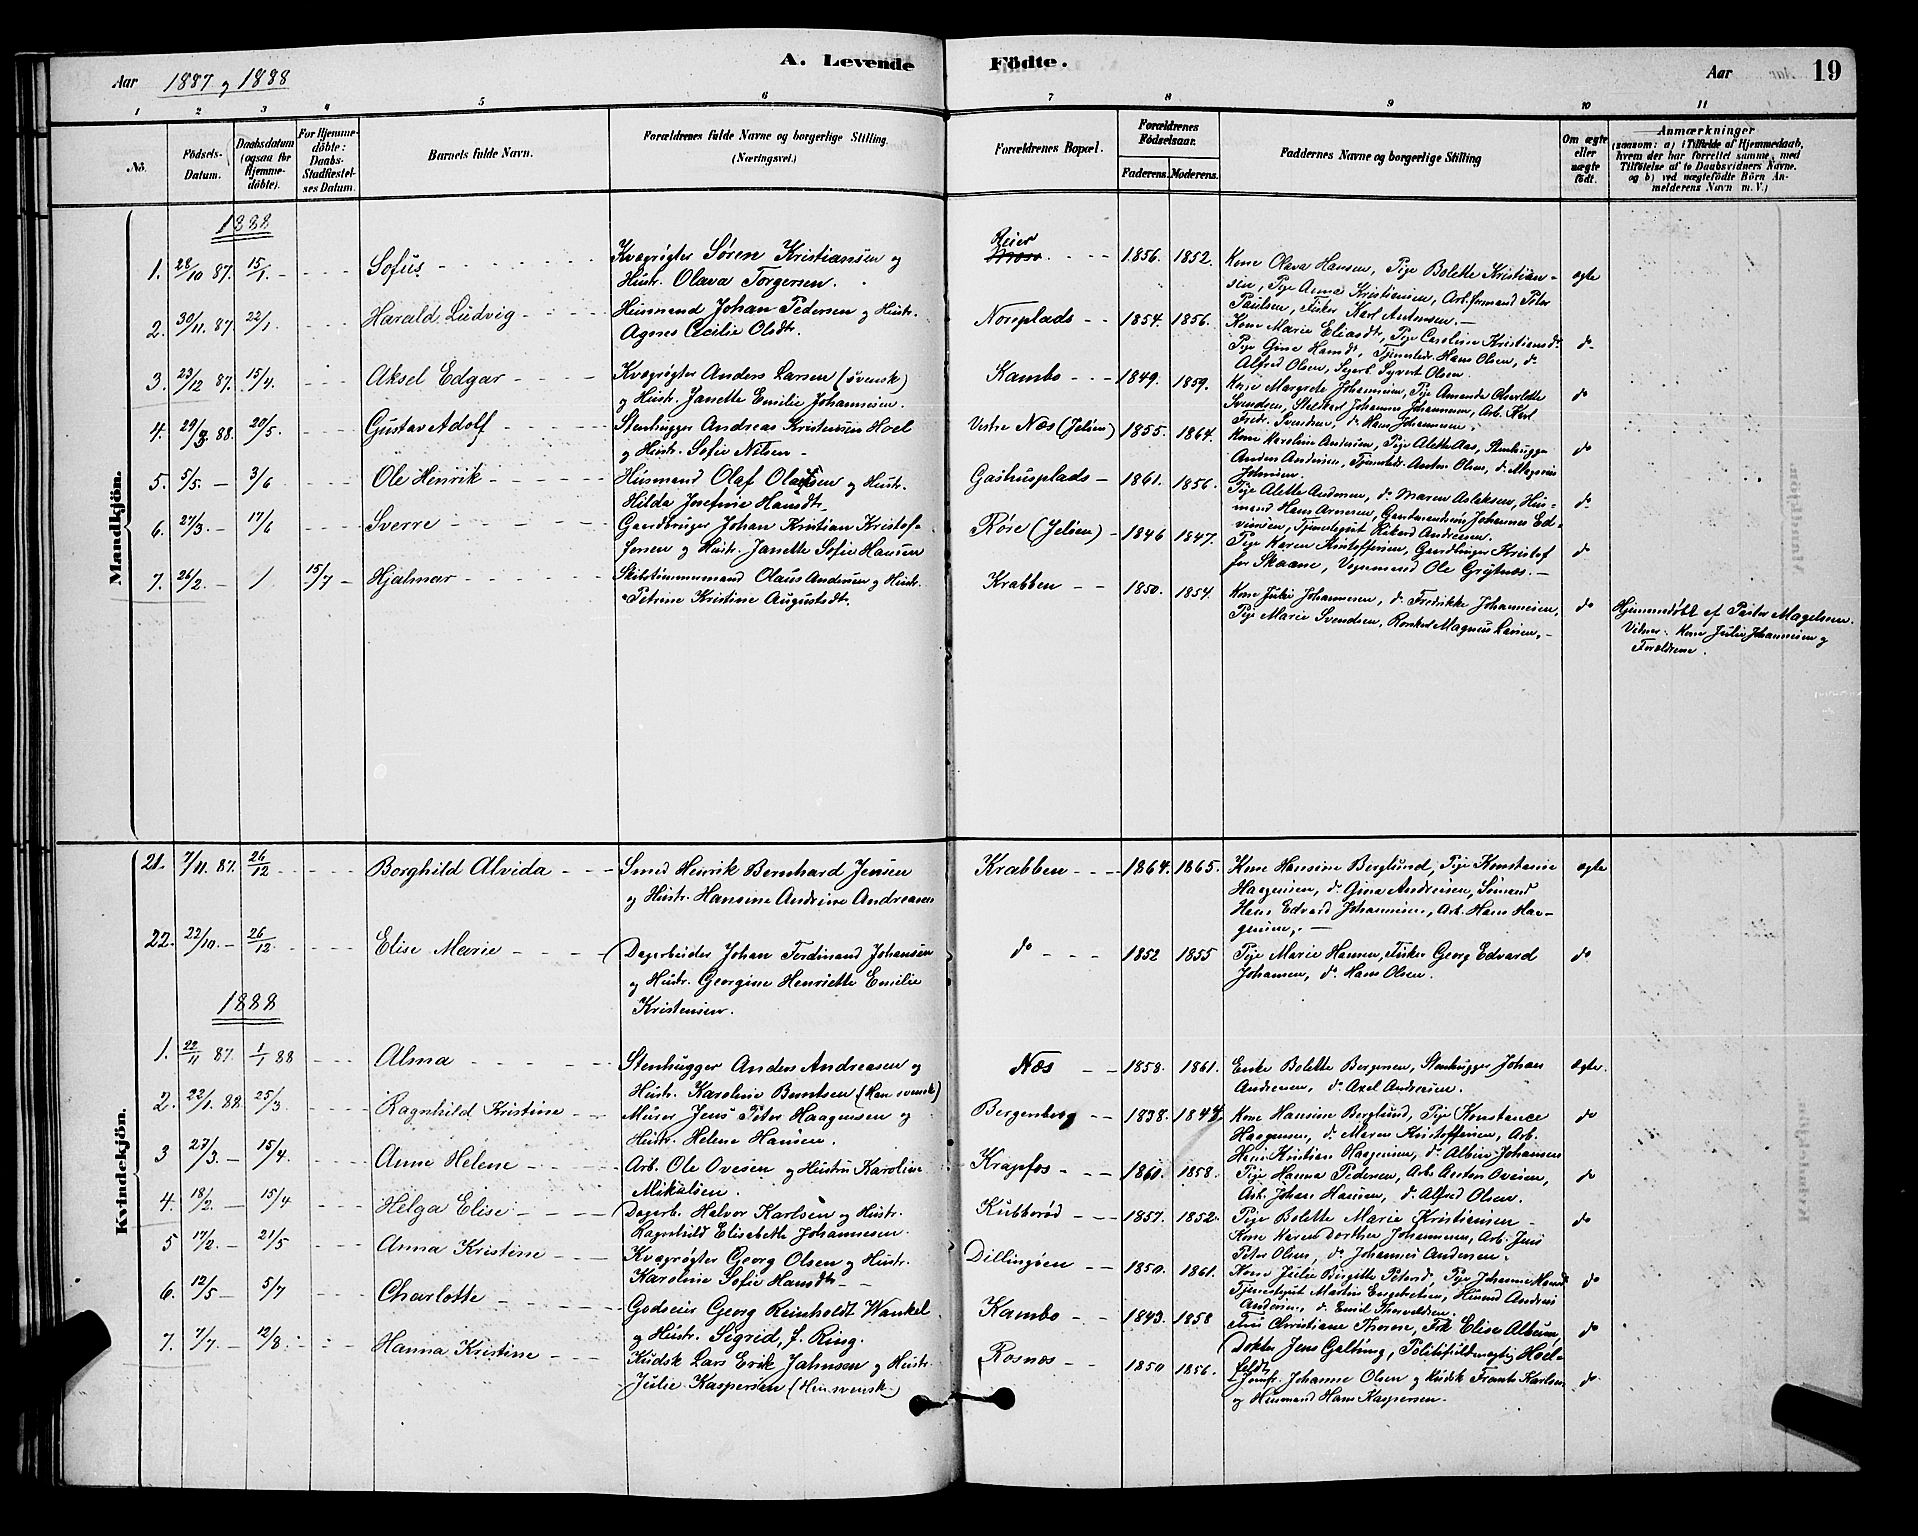 A. Levende Födte.
Aar 1887 og 1888
Aar 19
1 2 3 4 5 6 7 8 9 10 11
No.
Födsels-Datum.
Daabsdatum (ogsaa for Hjemme-döbte).
For Hjemme-döbte: Daabs-Stadfæstel-ses Datum.
Barnets fulde Navn.
Forældrenes fulde Navne og borgerlige Stilling. (Næringsvei.)
Forældrenes Bopæl.
Forældrenes Födselsaar.
Faderens. Moderens.
Faddernes Navne og borgerlige Stilling
Om ægte eller uægte födt.
Anmærkninger
(saasom: a) i Tilfælde af Hjemmedaab, hvem der har forrettet samme, med Tilföielse af to Daabsvidners Navne, og b) ved uægtefödte Börn An-melderens Navn m. V.)
Mandkjön.
1888
1. 28/10 87. 15/1 - Sofus - Kvægrøgter Søren Kristiansen og Reier 1856. 1852. Kone Olava Hansen, Pige Bolette Kristian- ægte
Hustr. Olava Torgersen. sen, Pige Anna Kristiansen, Arb.formand Peter
Paulsen, Fisker Karl Antonsen.-
2. 30/11. 87. 22/1. Harald Ludvig - Husmand Johan Pedersen og Hustr. Noreplads 1854. 1856. Kone Marie Eliasdtr, Pige Caroline Kristiansdtr do
Agnes Cecilie Olsdtr. Pige Gine Hansdtr, Tjenestedr. Hans Olsen, do
Alfred Olsen, Syvert Olsen.
3. 23/12 87. 15/4. Aksel Edgar - Kvægrøgter Anders Larsen (svensk) Kambo - 1849. 1859. Margrete Johannesen, Pige Amanda do
og Hustr. Janette Emilie Johannesen. Svendsen, Johannes Johannesen, Arb. Karl
Fredr. Svendsen, do Hans Johannesen.
4. 29/3 88. 20/5. Gustav Adolf - Stenhugger Andreas Kristensen Hoel Vestre Næs (Jeløen) 1855. 1864. Kone Karoline Andersen, Pige Alette Aas, Stenhugger do
og Hustr. Sofie Nilsen - Anders Andersen, Tjenestedr. Anton Olsen, do Magnus
Johnsen.
5. 5/5 - 3/6 Ole Henrik - Husmand Olaf Olausen og Hustr. Gashusplads - 1861. 1856. Pige Alette Andersen, do Maren Aslaksen, Hus- do
Hilda Josefine Hansdtr. mand Hans Arnesen, Gaardmandssøn Johannes Ed-
vinsen, Tjenestegut Rikard Andresen.
6. 27/3. - 17/6 Sverre - Gaardbruger Johan Kristian Kristof- Røre (Jeløen) - 1846 1847. Pige Karen Kristoffersen, Gaardbruger Kristof do
fersen og Hustr. Janette Sofie Hansen fer Skaane, Ole Grytnæs.-
7. 26/2. - / 15/7 - Hjalmar - Skibstømmermand Olaus Andersen og Hustr. Krabben - 1850. 1854. Kone Julie Johannesen, do Fredrikke Johannesen, do Hjemmedøbt af Pastor Magelssen.
Petrine Kristine Augustdtr. Pige Marie Svendsen, Magnus Larsen,- Vidner: Kone Julie Johannesen og
Forældrene.
Kvindekjön.
21. 7/11. 87. 26/12 Borghild Alvida - Smed Henrik Bernhard Jensen Krabben - 1864. 1865. Kone Hansine Berglund, Pige Konstance ægte
og Hustr. Hansine Andrine Andreasen Haagensen, do Gina Andreasen, Sømand
Hans Edvard Johannesen, Arb. Hans Haa-
gensen.-
22. 22/10. - 26/12. Elise Marie - Dagarbeider Johan Ferdinand Johansen do - 1852 1855 Pige Marie Hansen, Fisker Georg Edvard do
og Hustr. Georgine Henriette Emilie Johansen, do Hans Olsen.
Kristensen.
1888
1. 22/11 87. 1/1 88 Alma - Stenhugger Anders Andreasen og Næs - 1858. 1861. Enke Bolette Bergersen, Stenhugger Johan ægte.
Hustr. Karoline Berntsen (Han svensk) Andresen, do Axel Andresen.
2. 22/1. 88. 25/3. Ragnhild Kristine - Murer Jens Peter Haagensen og Bergersborg - 1838. 1844. Kone Hansine Berglund, Pige Konstance do
Hustr. Helene Hansen. Haagensen, do Maren Kristoffersen, Arb.
Hans Kristian Haagensen, do Albin Johansen
3 27/3. - 15/4. Anne Helene - Arb. Ole Ovesen og Hustru Karoline Krapfos - 1860. 1858. Pige Hanna Pedersen, Arb. Anton Ovesen, do
Mikalsen. Arb. Johan Hansen, do Alfred Olsen.
4. 18/2. - 15/4 Helga Elise - Dagarb. Halvor Karlsen og Hustr. Kubberød - 1857. 1852. Pige Bolette Marie Kristiansen - do
Ragnhild Elisabeth Johannesen. Kone Karen Dorthea Johannesen, Arb. Jens
Peter Olsen, do Johannes Andersen.
5 17/2. - 21/5 Anna Kristine - Kvægrøgter Georg Olsen og Hustr. Dillingøen - 1850. 1861. Kone Julie Birgitte Petersd, Pige Johanne Hansd do
Karoline Sofie Hansdtr - Tjenestegut Martin Engebretsen, Husmd Andreas
Andersen, do Emil Thorvaldsen.
6. 12/5 - 5/7 Charlotte - Godseier Georg Reinholdt Wankel Kambo - 1843. 1858 Fru Christiane Thorne, Frk Elise Album, do
og Hustr. Sigrid, f. Ring. Doktor Jens Galtung, Politifuldmægtig Hoel-
feldt
7. 7/7. - 12/8. Hanna Kristine - Kudsk Lars Erik Jahnsen og Hustr. Rosnæs - 1850 1856. Jomfr. Johanne Olsen og Kudsk Frants Karlsen do
Julie Kaspersen (Han svensk.) og Husmand Hans Kaspersen.